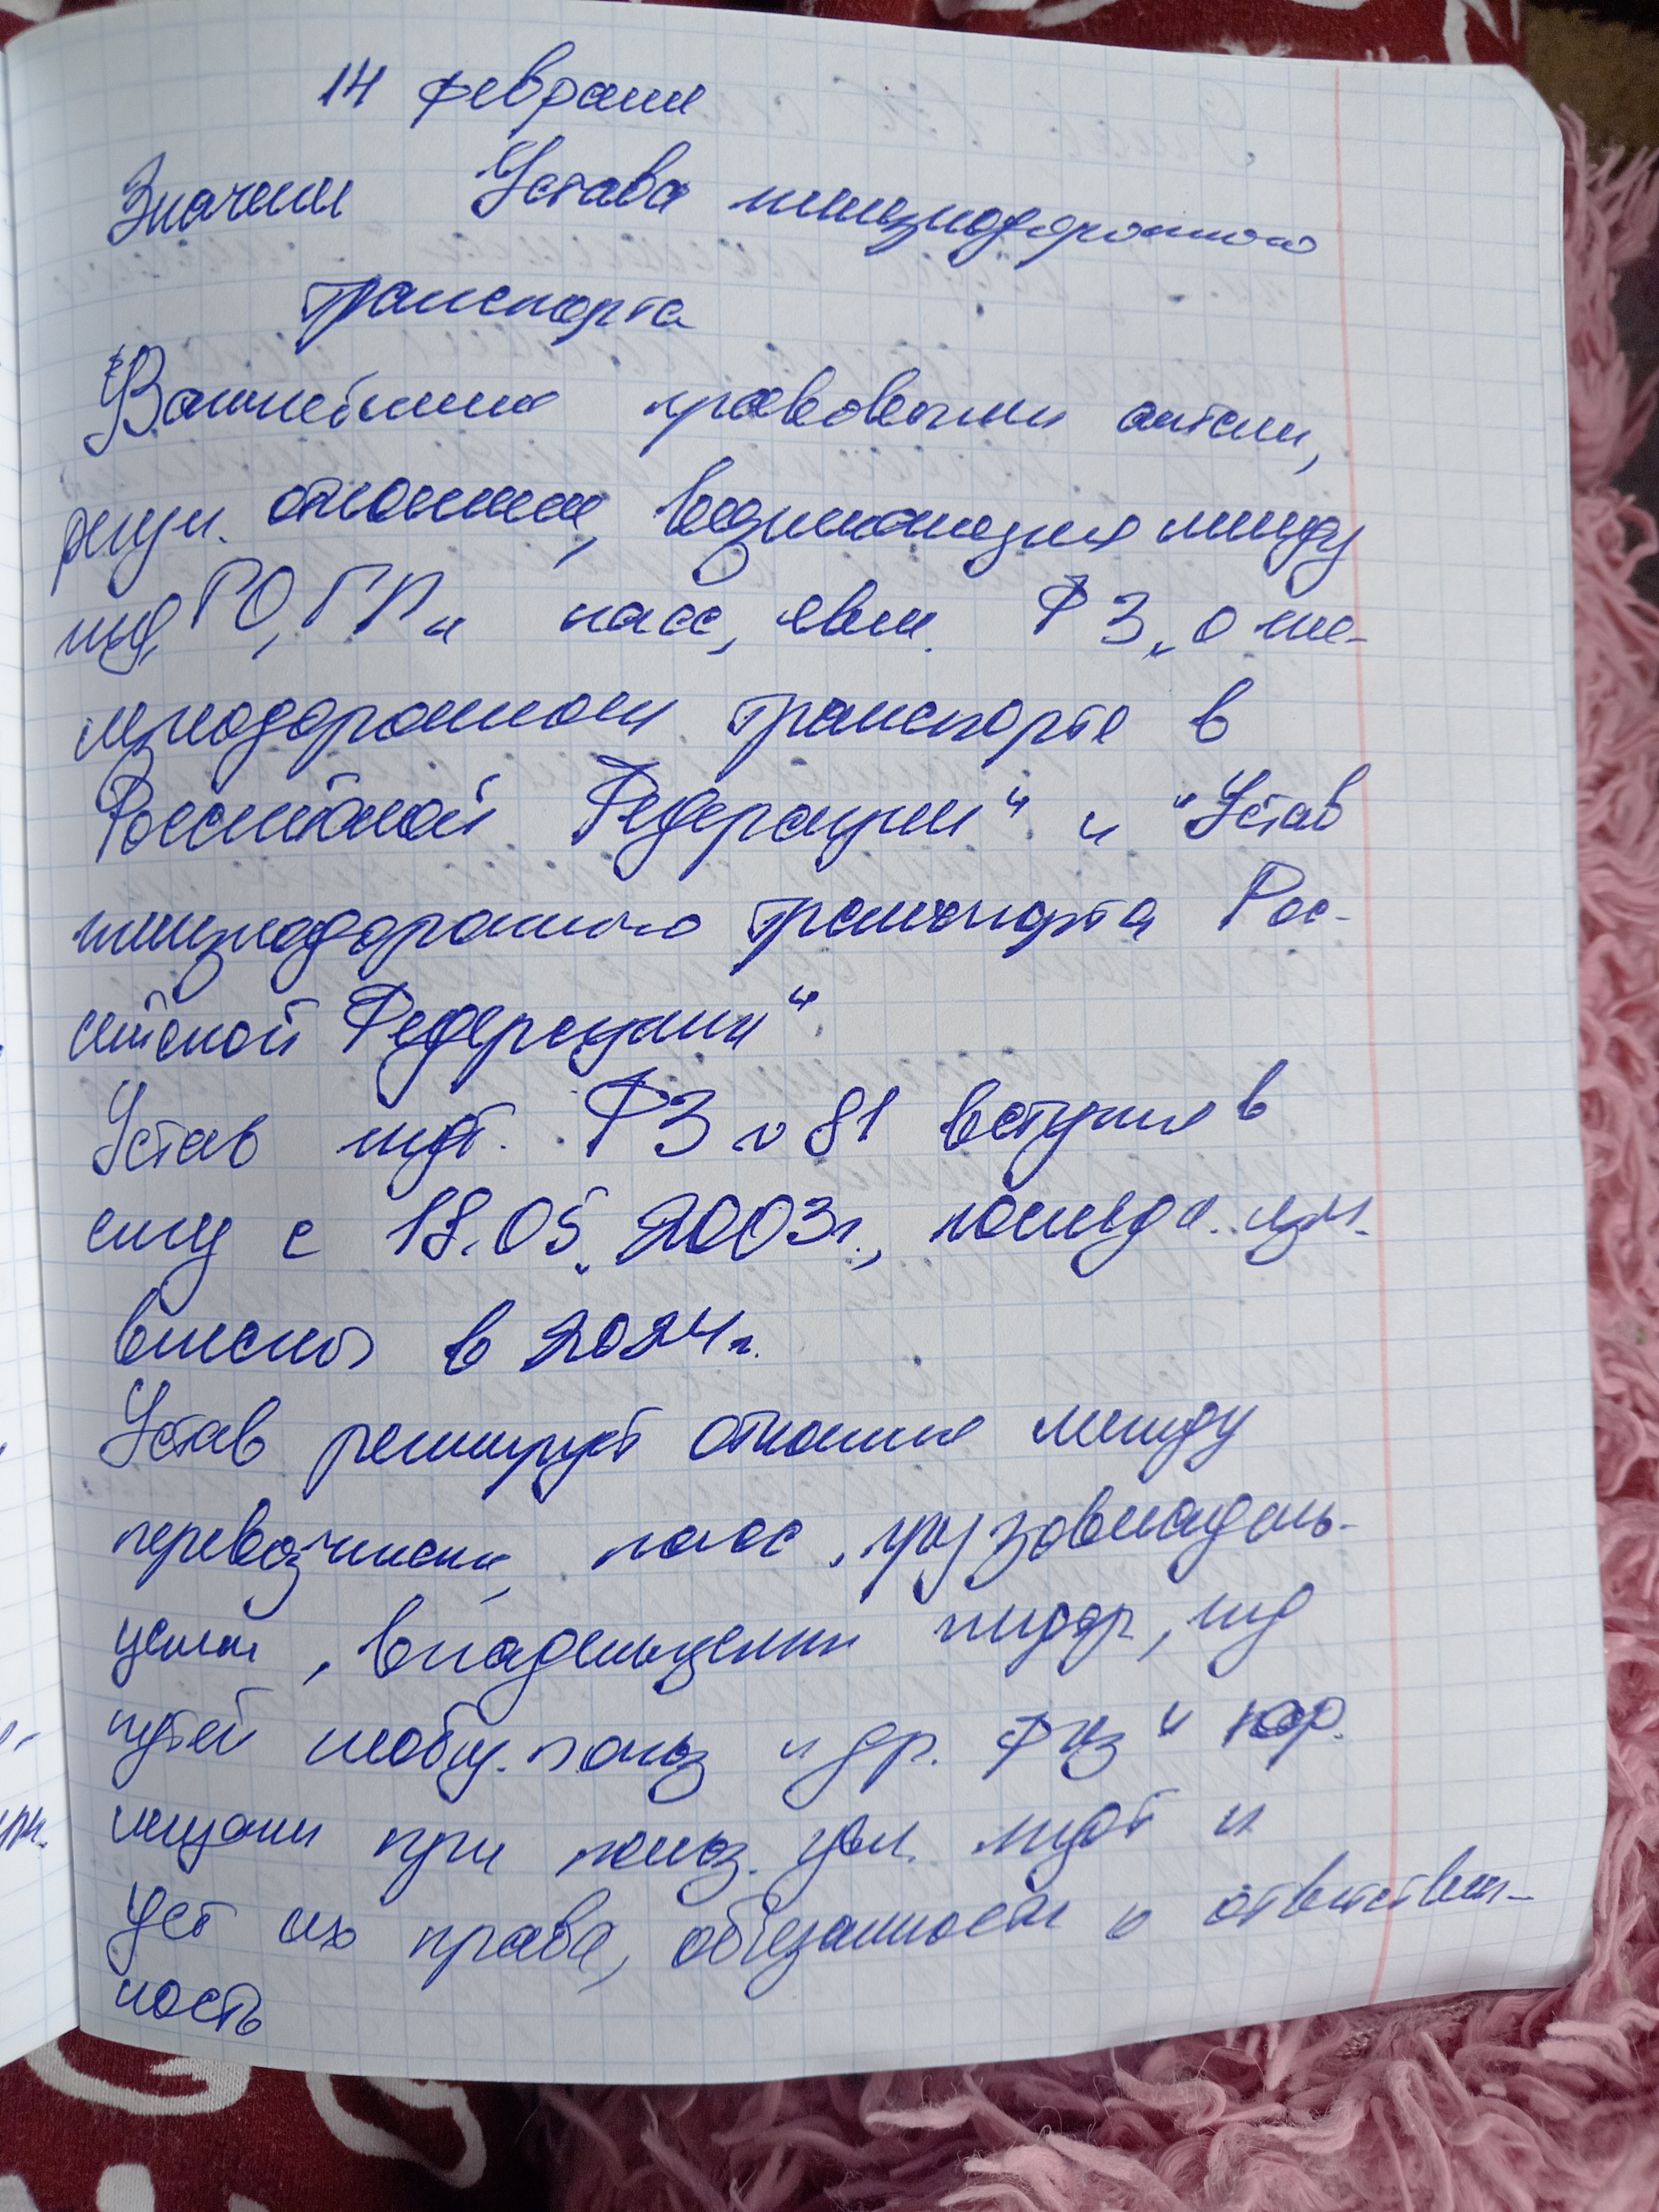 14 февраля
Значение Устава железнодорожного
транспорта
Важнейшими правовыми актами,
регул. отношения, возникающие между
жд, ГО, ГП и пасс, явл. ФЗ "О же-
лезнодорожном транспорте в
Российской Федерации" и "Устав
железнодорожного транспорта Рос-
сийской Федерации"
Устав ждт. ФЗ 81 вступил в
силу с 18.05.2003г., последн. изм.
внесены в 2024г.
Устав регулирует отношения между
перевозчиками, пасс, грузовладель-
цами, владельцами инфр, жд
путей необщ. польз и др. физ и юр.
лицами при польз. усл. ждт и
уст их права, обязанности и ответствен-
ность